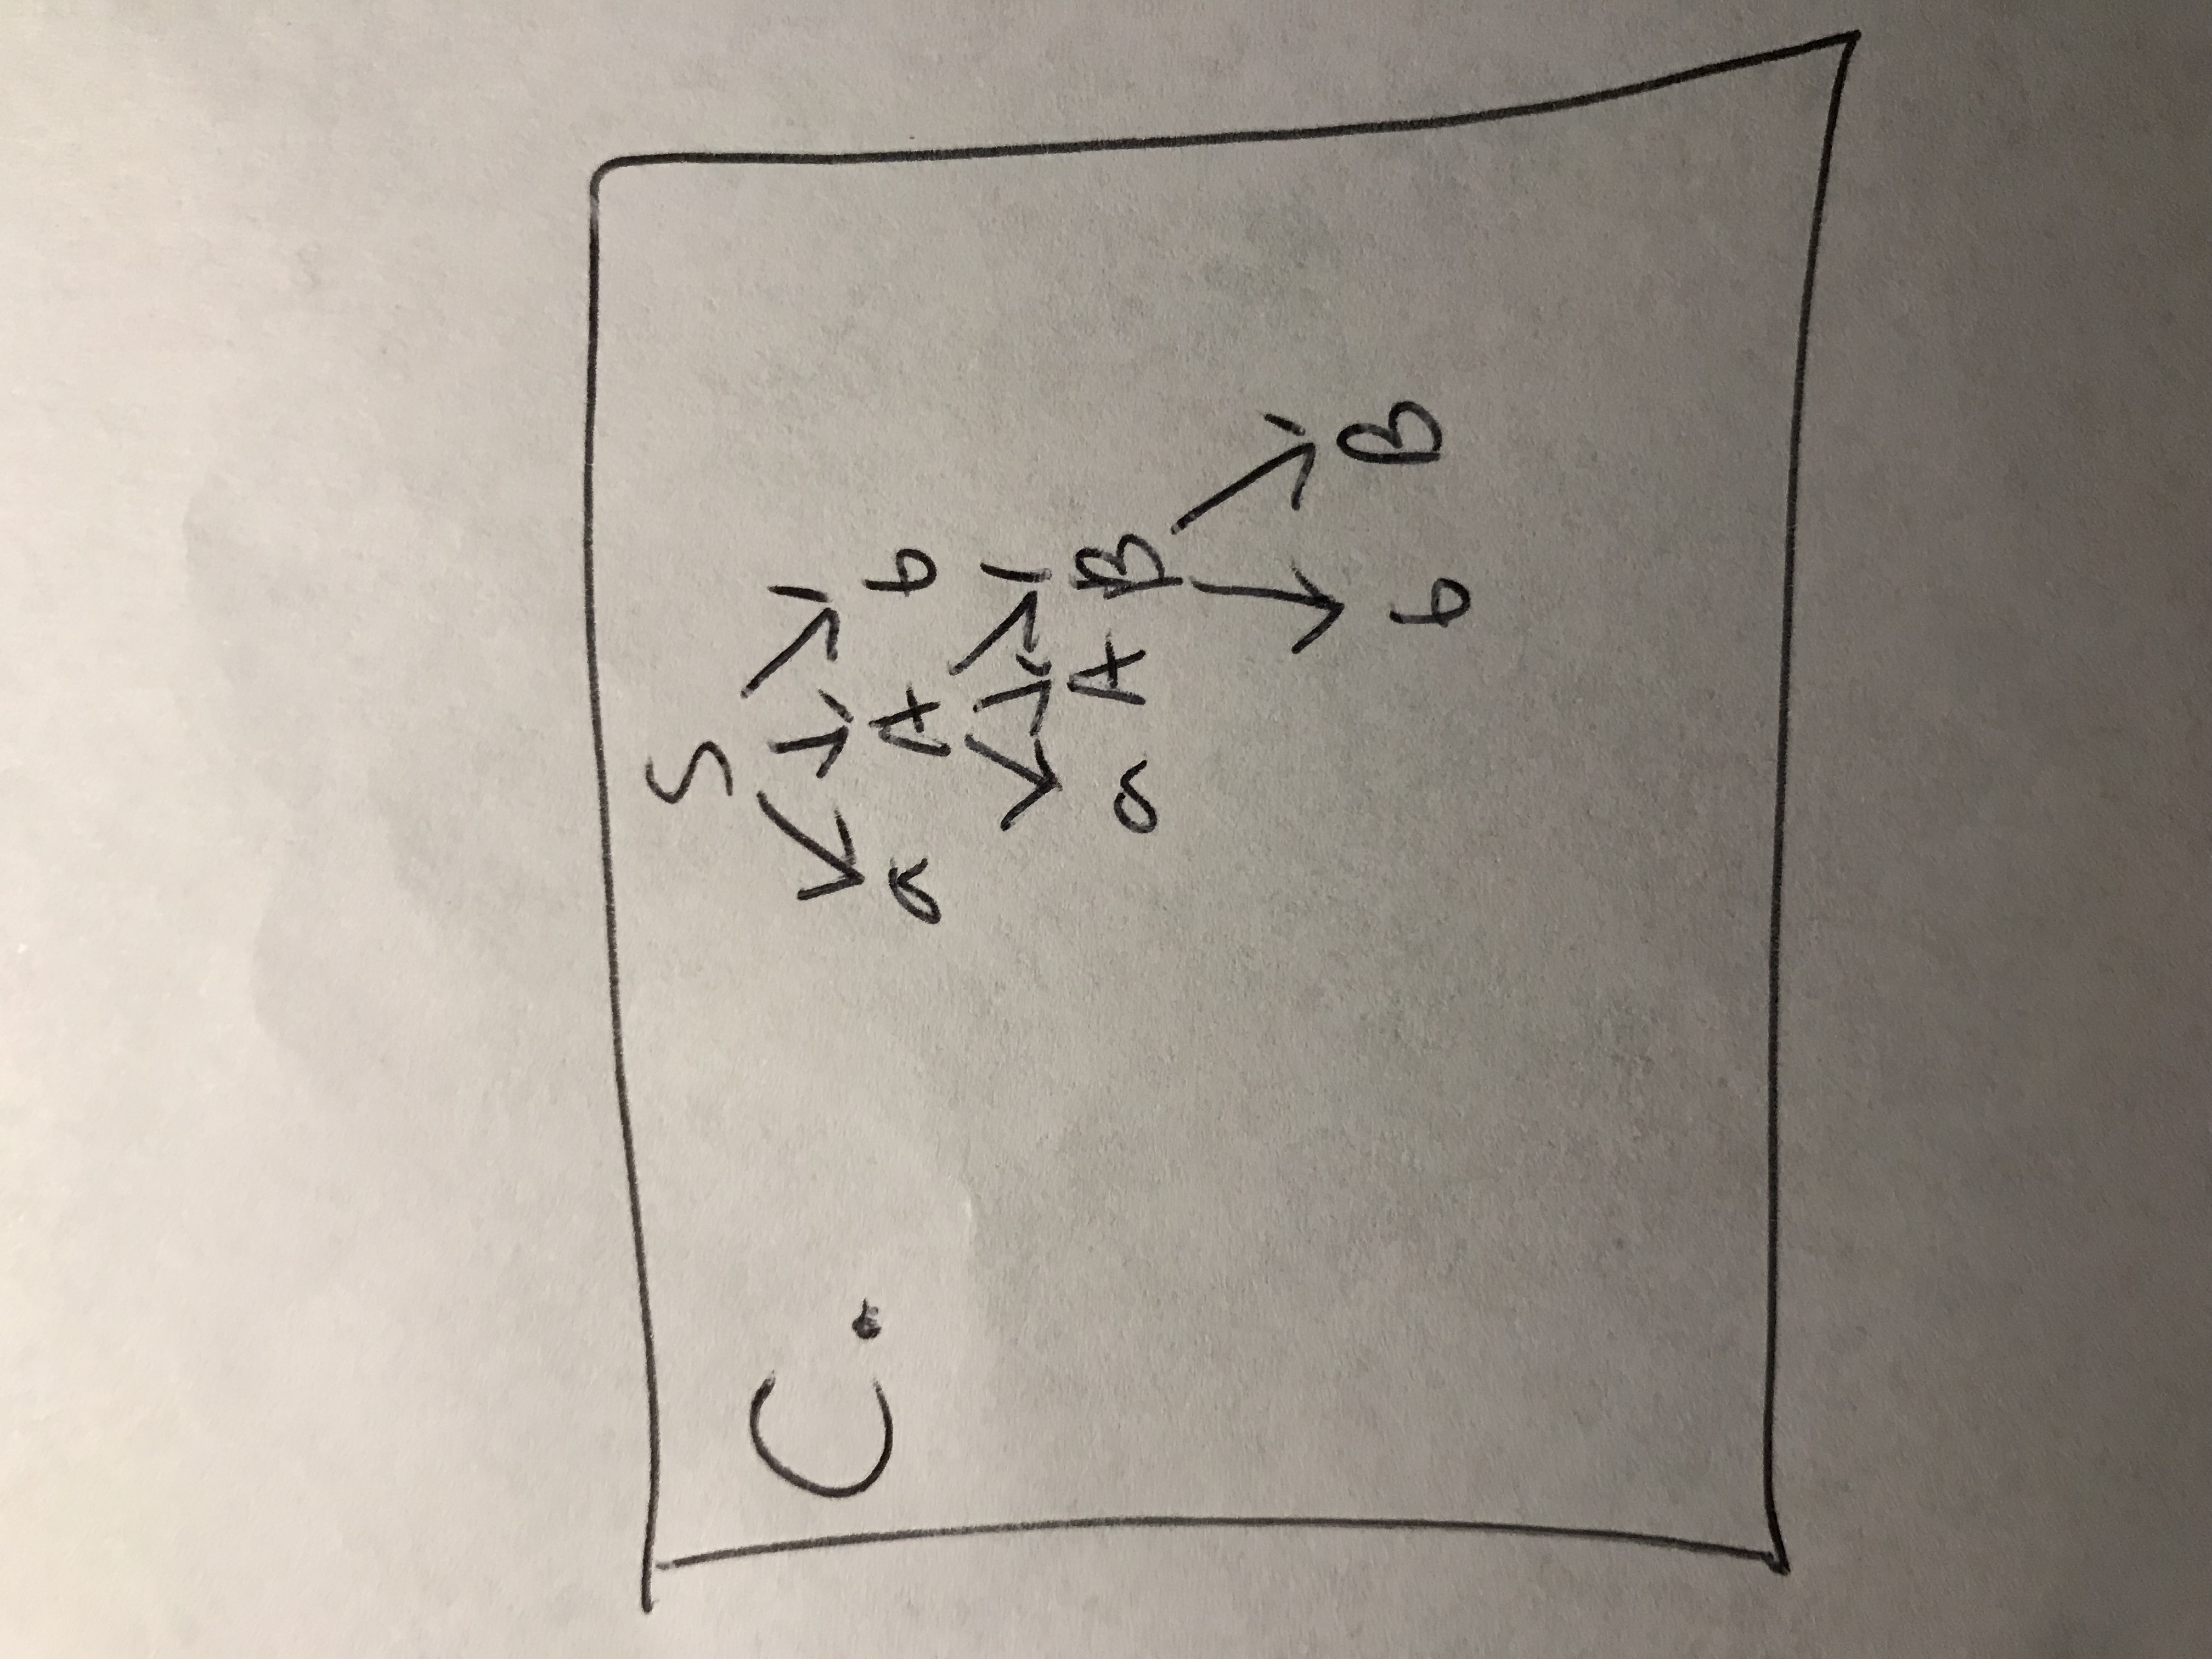 S
C.
a A b
a A B
b B